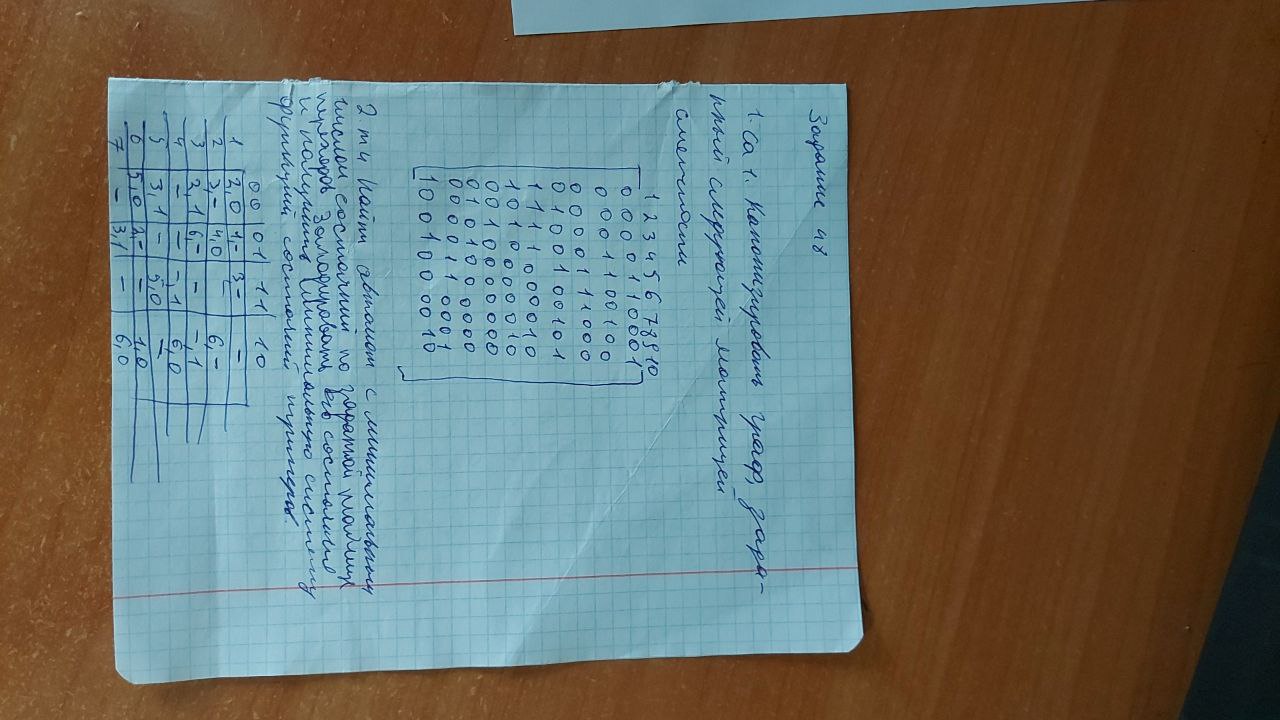 Задание 48
1. Са 1. Канонизировать граф, зада-
нный следующей матрицей
смежности
1 2 3 4 5 6 7 8 9 10
0 0 0 0 1 1 0 0 0 1
0 0 0 1 1 0 0 1 0 0
0 0 0 0 1 1 1 0 0 0
0 1 0 0 1 0 0 1 0 1
1 1 1 1 0 0 0 0 1 0
1 0 1 0 0 0 0 0 1 0
0 0 1 0 0 0 0 0 0 0
0 1 0 1 0 0 0 0 0 0
0 0 0 0 1 1 0 0 0 1
1 0 0 1 0 0 0 0 1 0
2. Найти автомат с минимальным
числом состояний по заданной таблице
переходов. Закодировать его состояния
и получить минимальную систему
функций состояний триггеров.
00 01 11 10
1 2,0 1,- 3,- -
2 3,- 4,0 - 6,-
3 2,1 6,- - -,1
4 - - -,1 6,0
5 3,1 - 5,0 -
6 5,0 2,- - 1,0
7 - 3,1 - 6,0